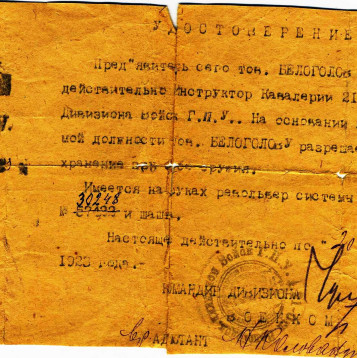 УДОСТОВЕРЕНИЕ
Пред"явитель сего тов. БЕЛОГОЛОВ
действительно Инструктор Кавалерии 21
Дивизиона Войск Г.П.У.. На основании
мой должности тов. БЕЛОГОЛОВУ разрешае
хранение оружия.
Имеется на руках револьвер системы
30248
№ и шашка.
Настоящее действительно по "30
1923 года.-
КОМАНДИР ДИВИЗИОНА
ВОЕНКОМ
АД'ЮТАНТ